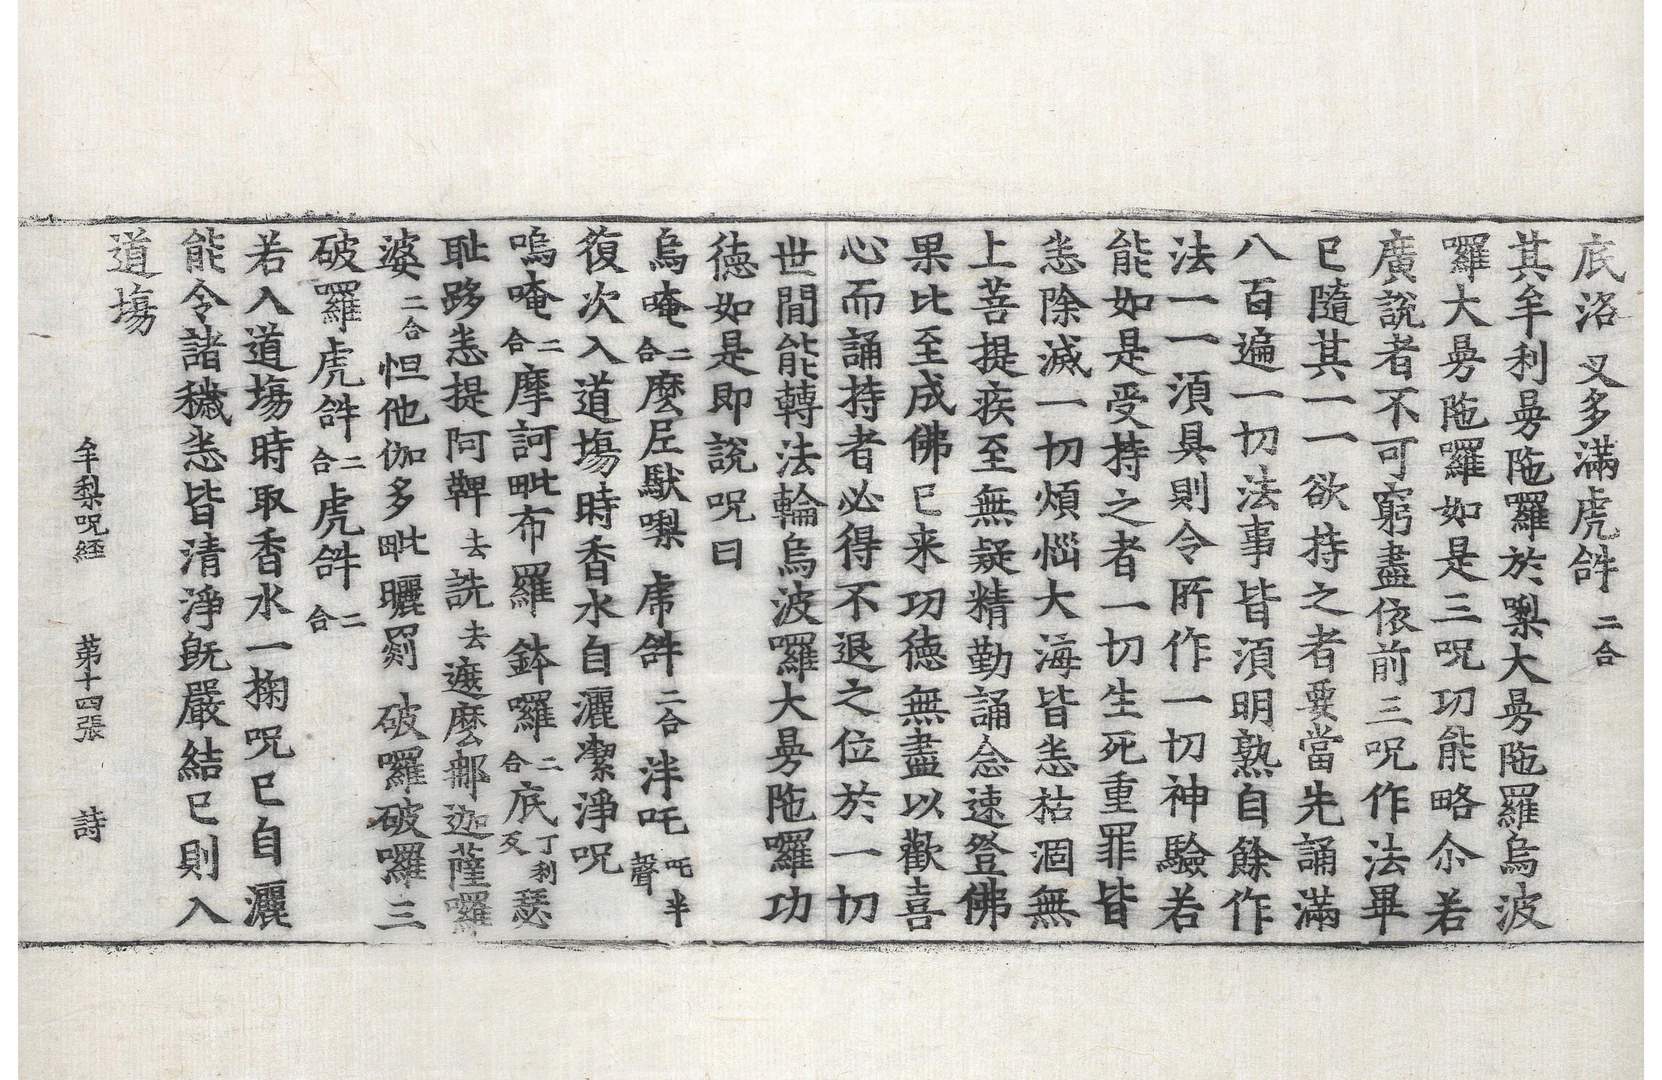 底洛 叉多滿虎𤙖 二合
其牟利曼陁羅於㗚大曼陁羅烏波
囉大曼陁囉如是三呪功能略尒若
廣說者不可窮盡依前三呪作法畢
已隨其一一欲持之者要當先誦滿
八百遍一切法事皆須明熟自餘作
法一一須具則令所作一切神驗若
能如是受持之者一切生死重罪皆
悉除滅一切煩惱大海皆悉枯涸無
上菩提疾至無疑精勤誦念速登佛
果比至成佛已来功德無盡以歡喜
心而誦持者必得不退之位於一切
世間能轉法輪烏波囉大曼陁囉功
德如是即說呪曰
烏唵 二合 麼𡰱馱㗚 虎𤙖 二合 泮吒 吒半聲
復次入道場時香水自灑潔淨呪
嗚唵 二合 摩訶毗布羅 鉢囉 二合 底 丁利反 瑟
耻跢悉提阿鞞 去 詵 去 遮麼郍迦薩囉
婆 二合 怛他伽多毗曬罽 破囉破囉三
破羅虎𤙖 二合 虎𤙖 二合
若入道場時取香水一掬呪已自灑
能令諸穢悉皆清淨旣嚴結已則入
道場
牟梨呪経 第十四張 詩